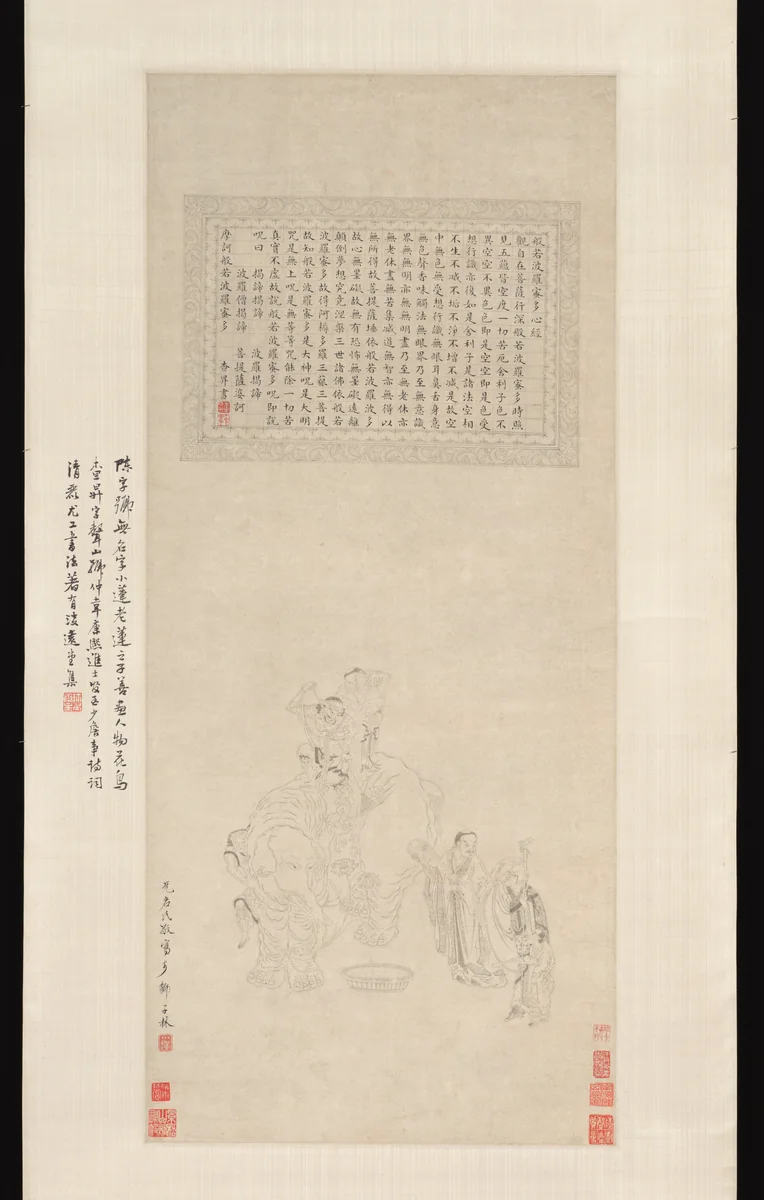 般若波羅蜜多心經
觀自在菩薩行深般若波羅蜜多時照
見五蘊皆空度一切苦厄舍利子色不
異空空不異色色即是空空即是色受
想行識亦復如是舍利子是諸法空相
不生不滅不垢不淨不增不減是故空
中無色無受想行識無眼耳鼻舌身意
無色聲香味觸法無眼界乃至無意識
界無無明亦無無明盡乃至無老死亦
無老死盡無苦集滅道無智亦無得以
無所得故菩提薩埵依般若波羅蜜多
故心無罣礙故無有恐怖無罣礙遠離
顛倒夢想究竟涅槃三世諸佛依般若
波羅蜜多故得阿耨多羅三藐三菩提
故知般若波羅蜜多是大神呪是大明
呪是無上呪是無等等呪能除一切苦
真實不虛故說般若波羅蜜多呪即說
呪曰 揭諦揭諦 波羅揭諦
波羅僧揭諦 菩提薩婆訶
摩訶般若波羅蜜多 查昇書
陳字號無名字小蓮老蓮之子善畫人物花鳥
查昇字聲山號仲韋康熙進士官至少詹事詩詞
清麗尤工書法著有澹遠堂集
無名氏敬寫于獅子林